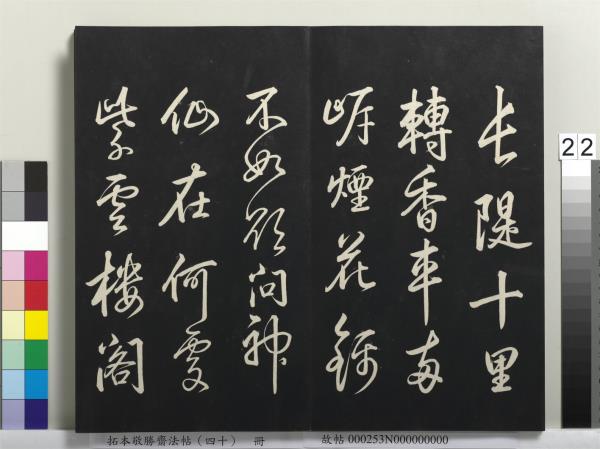 長隄十里
轉香車兩
岸煙花錦
不如欲問神
仙在何處
紫雲樓閣
22
拓本敬勝齋法帖(四十) 冊 故帖 000253N000000000